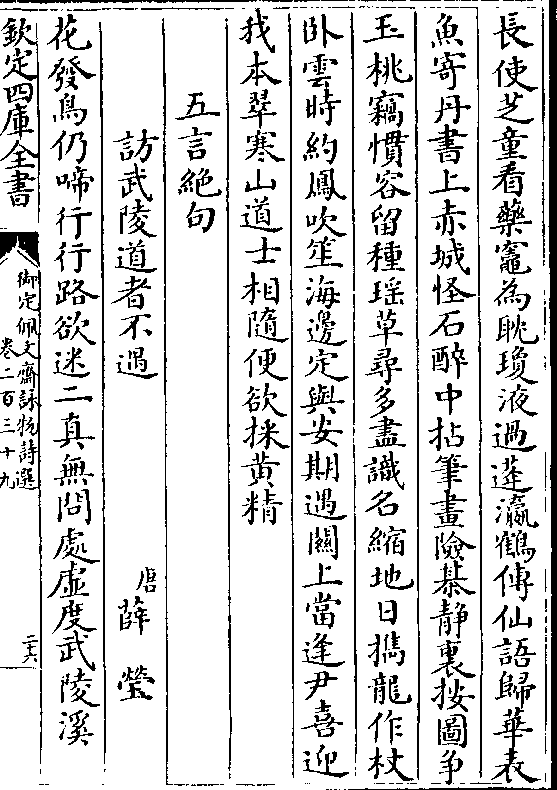 長使芝童看藥竈為耽瓊液過蓬瀛鶴傳仙語歸華表
魚寄丹書上赤城怪石醉中拈筆畫險棊静裏按圖争
玉桃竊慣容留種瑶草尋多盡識名縮地日擕龍作杖
卧雲時約鳳吹笙海邊定與安期遇關上當逢尹喜迎
我本翠寒山道士相隨便欲採黄精
五言絶句
訪武陵道者不遇
唐薛瑩
花發鳥仍啼行行路欲迷二真無問處虚度武陵溪
欽定四庫全書
御定佩文齋詠物詩選
卷二百三十九
二六